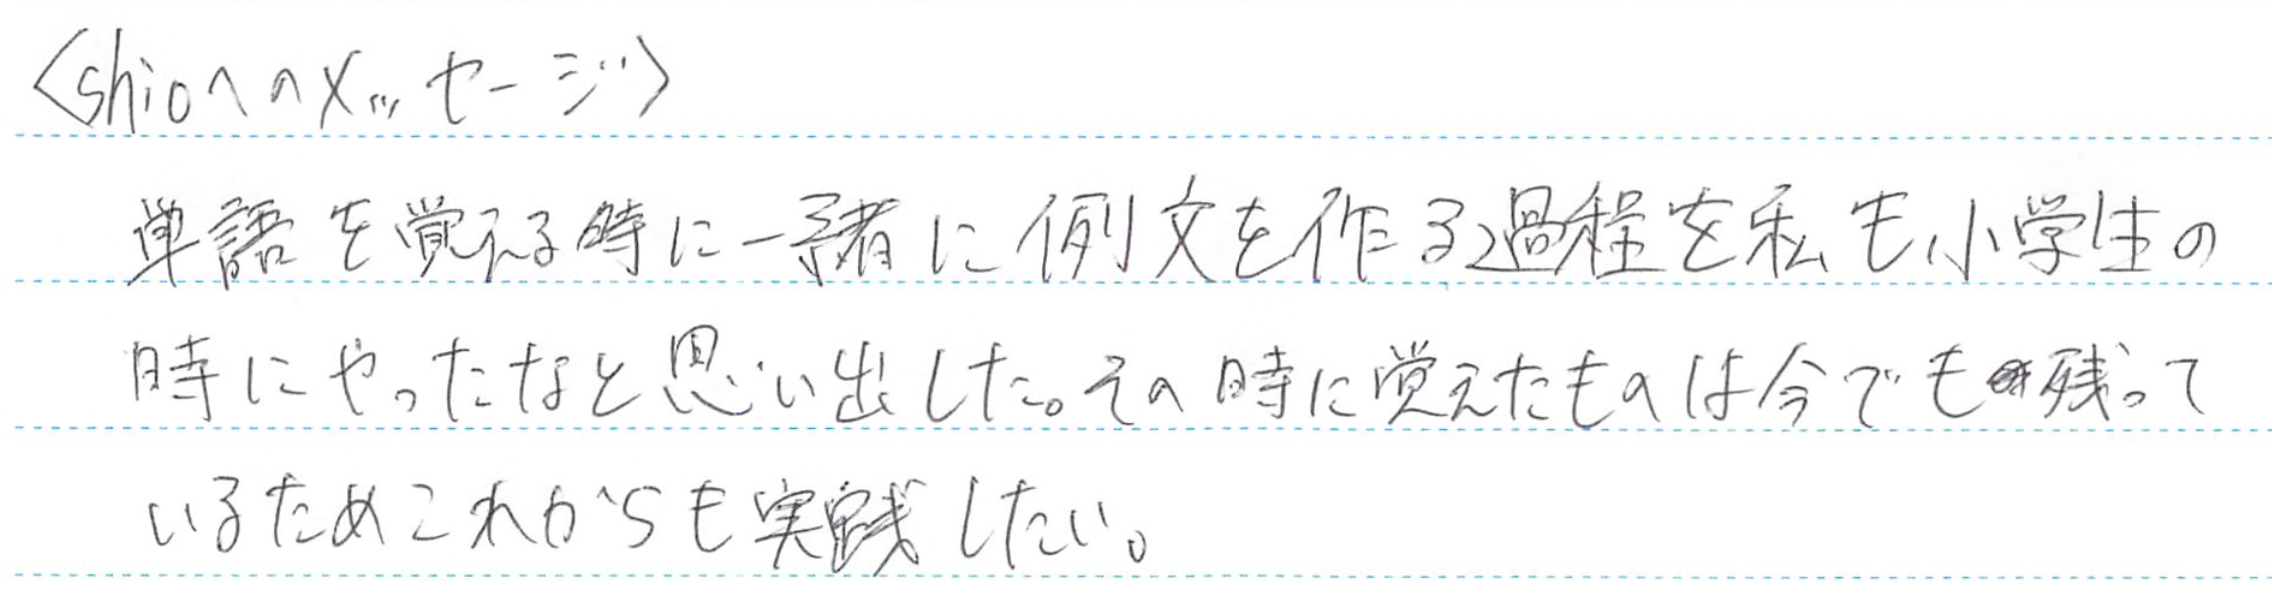 〈shioへのメッセージ〉
単語を覚える時に一緒に例文を作る過程を私も小学生の
時にやったなと思い出した。その時に覚えたものは今でも残って
いるためこれからも実践したい。